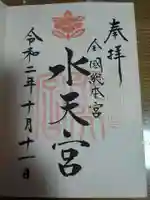 奉拝
全国総本宮
水天宮
令和二年十月十一日